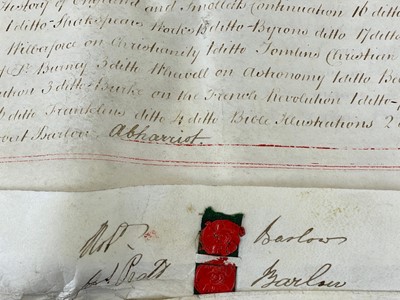 History of England and Smolletts continuation 16 ditto
1 ditto - Shakespears Works 1 ditto - Byrons ditto 17 ditto
Wilberforce on Christianity 1 ditto Tomlins Christian
Burney 3 ditto Whewell on Astronomy 1 ditto
3 ditto - Burke on the French Revolution 1 ditto -
ditto Franklins ditto 4 ditto Bible Illustrations 2
Barlow
Robt. Barlow
Pratt Barlow